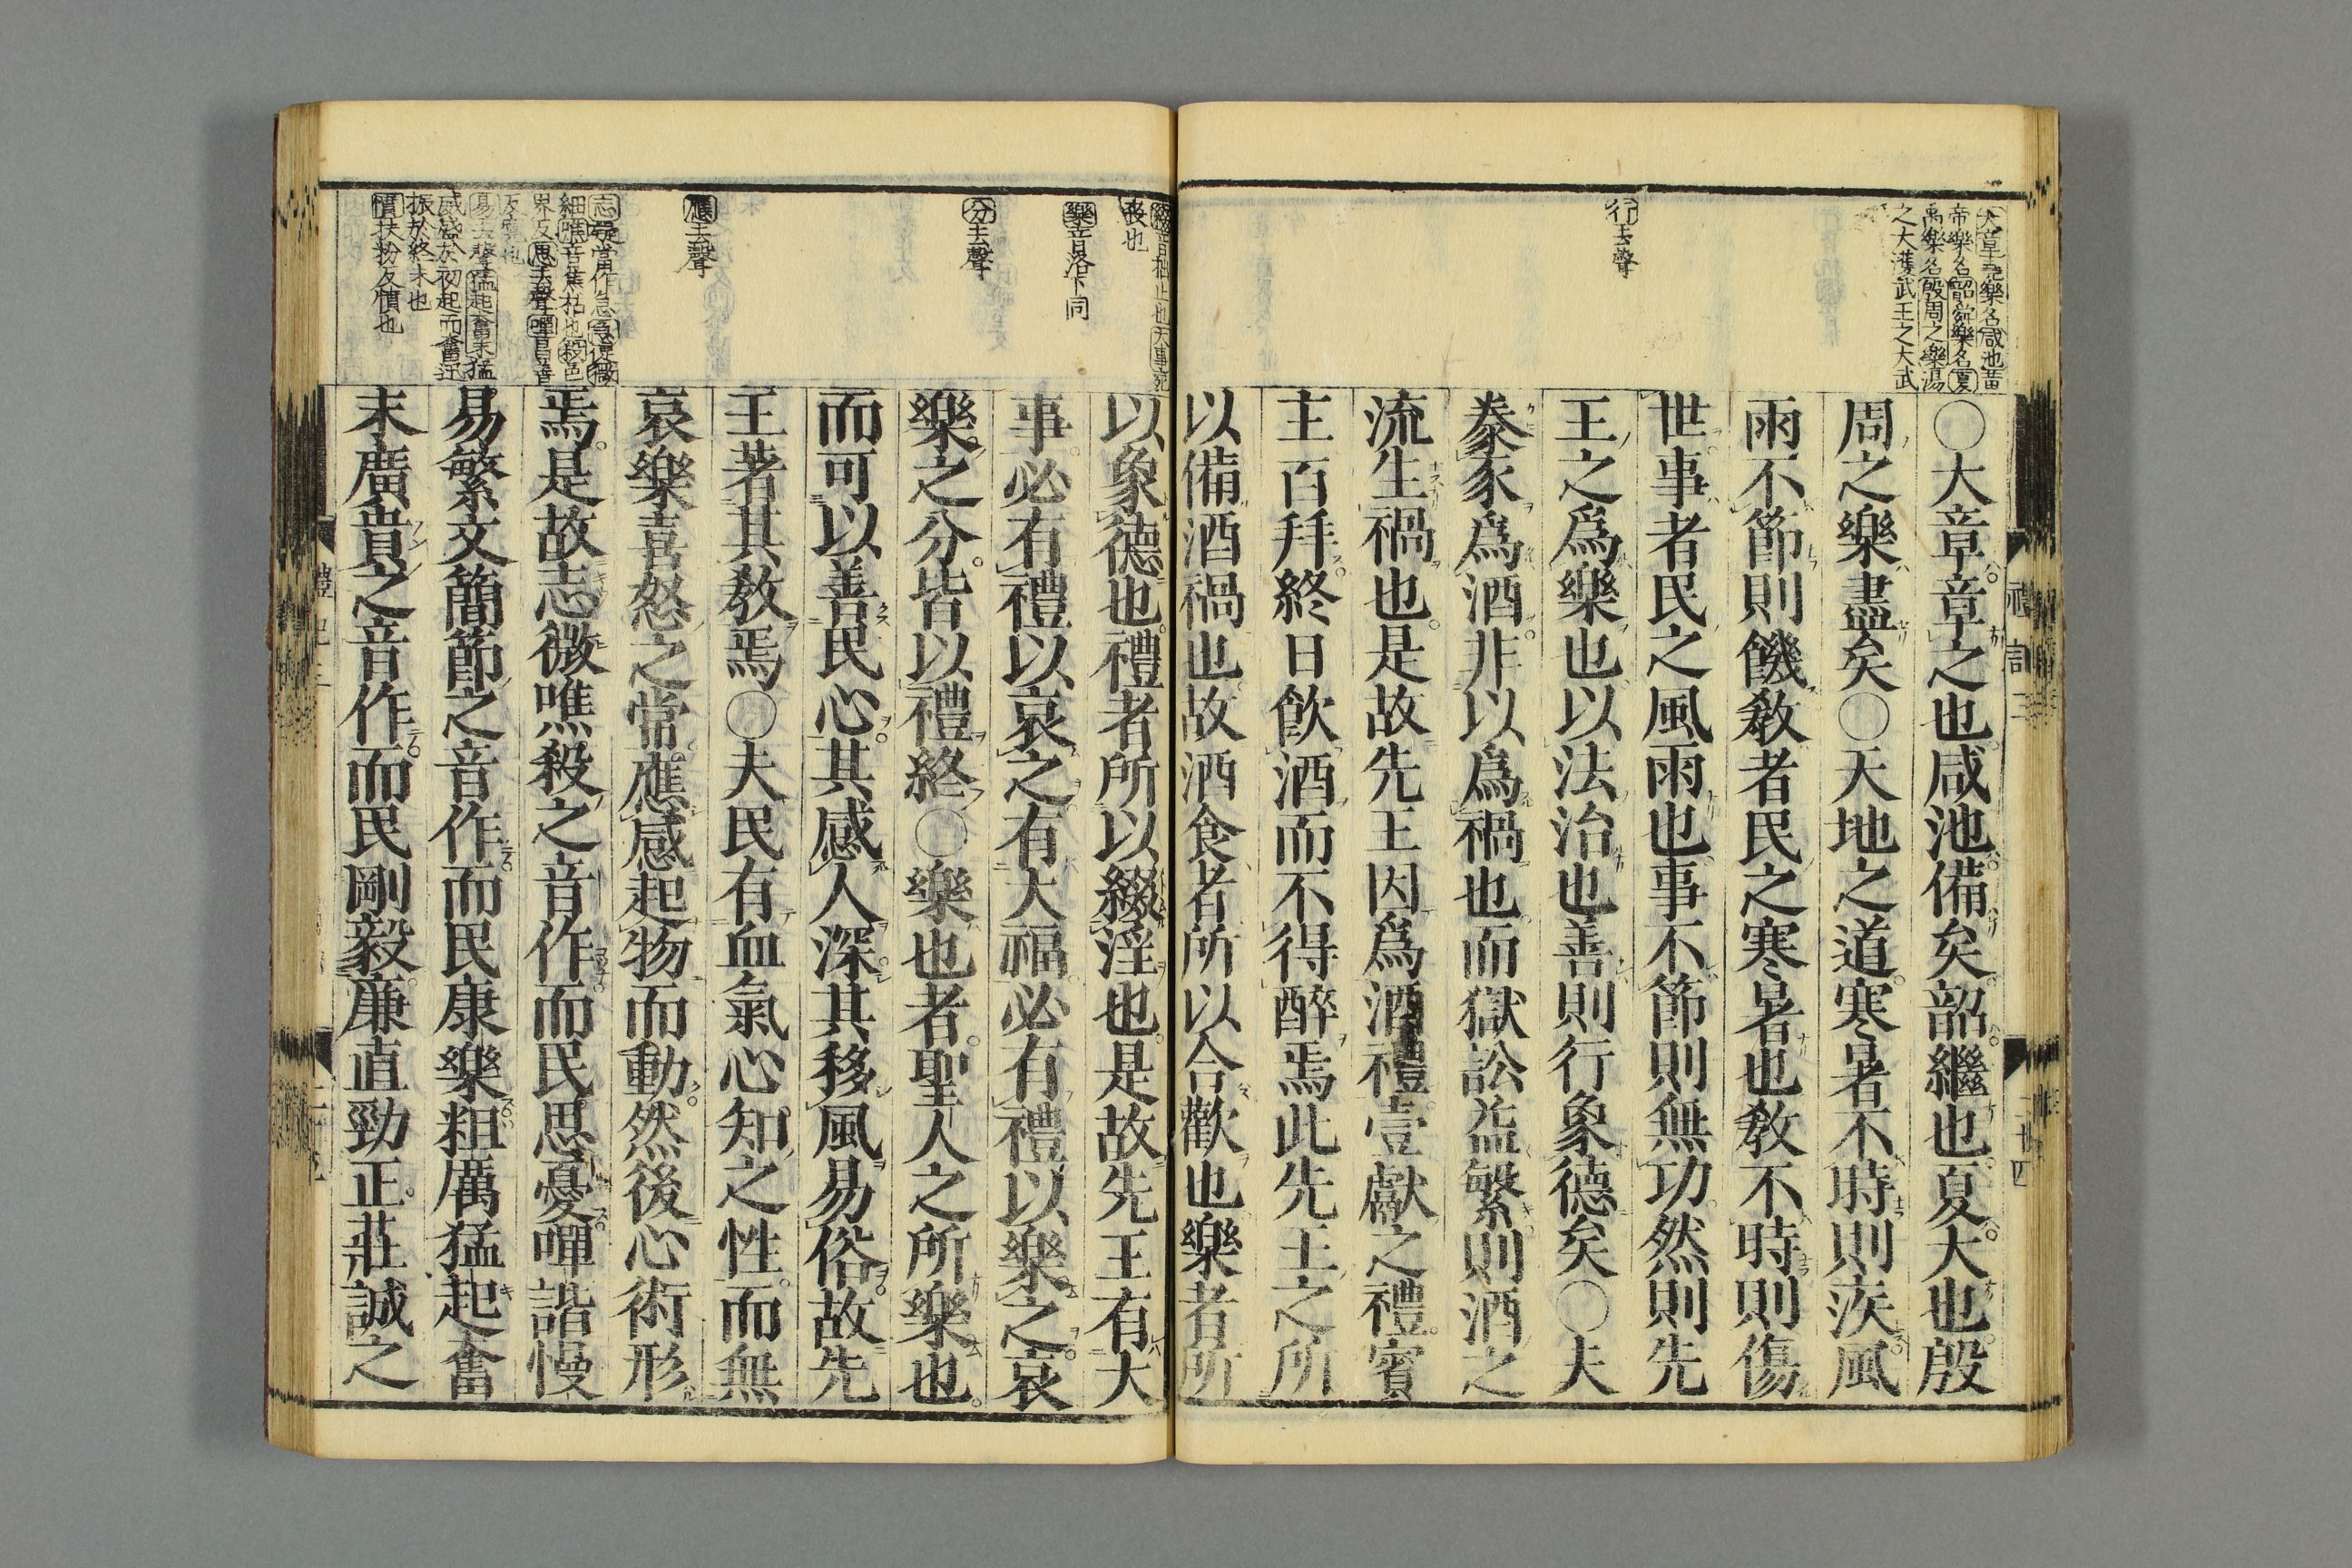 大章堯樂名咸池黃
帝樂名韶舜樂名夏
禹樂名殷周之樂湯
之大濩武王之大武
行去聲
〇大章章之也咸池備矣韶繼也夏大也殷
周之樂盡矣〇天地之道寒暑不時則疾風
雨不節則饑敎者民之寒暑也敎不時則傷
世事者民之風雨也事不節則無功然則先
王之爲樂也以法治也善則行象德矣〇夫
豢豕爲酒非以爲禍也而獄訟益繁則酒之
流生禍也是故先王因爲酒禮壹獻之禮賓
主百拜終日飮酒而不得醉焉此先王之所
以備酒禍也故酒食者所以合歡也樂者所
禮記三
綴音拙止也大事死
喪也
樂音洛下同
分去聲
應去聲
志噍當作急急促微
細噍音焦枯也殺色
界反思去聲嘽昌善
反寬也
易去聲猛起奮末猛
威盛於初起而奮迅
振於終末也
憤扶粉反憤也
以象德也禮者所以綴淫也是故先王有大
事必有禮以哀之有大福必有禮以樂之哀
樂之分皆以禮終〇樂也者聖人之所樂也
而可以善民心其感人深其移風易俗故先
王著其敎焉〇夫民有血氣心知之性而無
哀樂喜怒之常應感起物而動然後心術形
焉是故志微噍殺之音作而民思憂嘽諧慢
易繁文簡節之音作而民康樂粗厲猛起奮
末廣賁之音作而民剛毅廉直勁正莊誠之